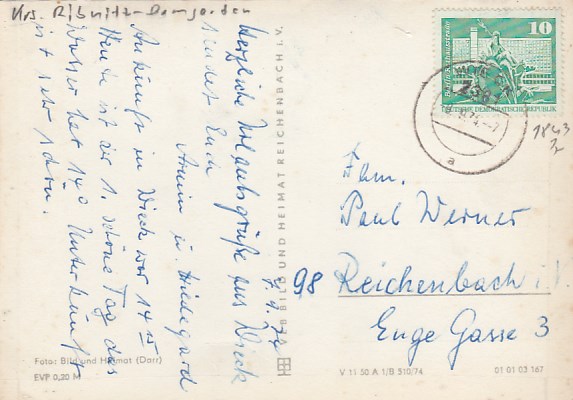 Krs. Ribnitz-Damgarten
Herzliche Urlaubsgrüße aus Wieck
sendet Euch
Armin u. Hildegard
Ankunft in Wieck war 14 15
Heute ist der 1. schöne Tag das
Wasser hat 14° Unterkunft
ist sehr schön.
9.9.74
VEB BILD UND HEIMAT REICHENBACH I. V.
Foto: Bild und Heimat (Darr)
EVP 0,20 M
10
DEUTSCHE DEMOKRATISCHE REPUBLIK
a
1843
Fam.
Paul Werner
98 Reichenbach i.
Enge Gasse 3
V 11 50 A 1/B 510/74
01 01 03 167